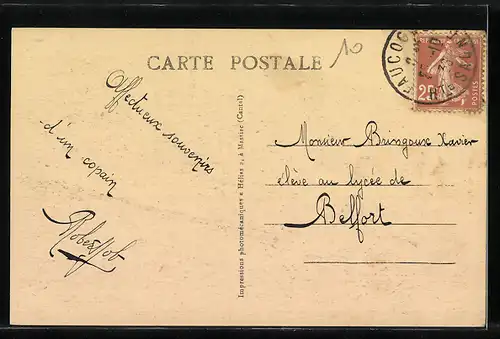 10
CARTE POSTALE
Affectueux souvenirs
d'un copain
Impressions photomécaniques « Hélios », à Massiac (Cantal)
Monsieur Bringoux Xavier
élève au lycée de
Belfort
FAUCOG
HTE SAÔN
POSTES